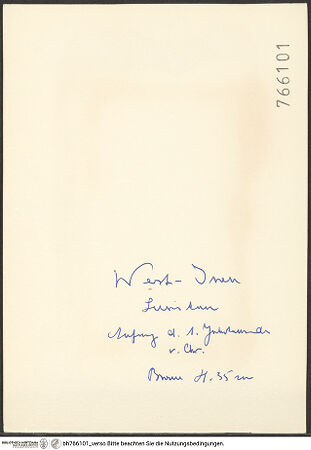 766101
West-Iran
Luristan
Anfang d. 1. Jahrtausends
v. Chr.
Bronze H. 35 cm
bh766101_verso Bitte beachten Sie die Nutzungsbedingungen.